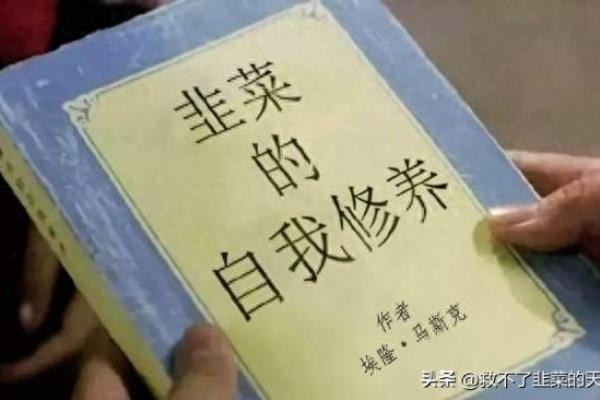 韭菜
的
自我修养
作者
埃隆·马斯克
头条 @救不了韭菜的天